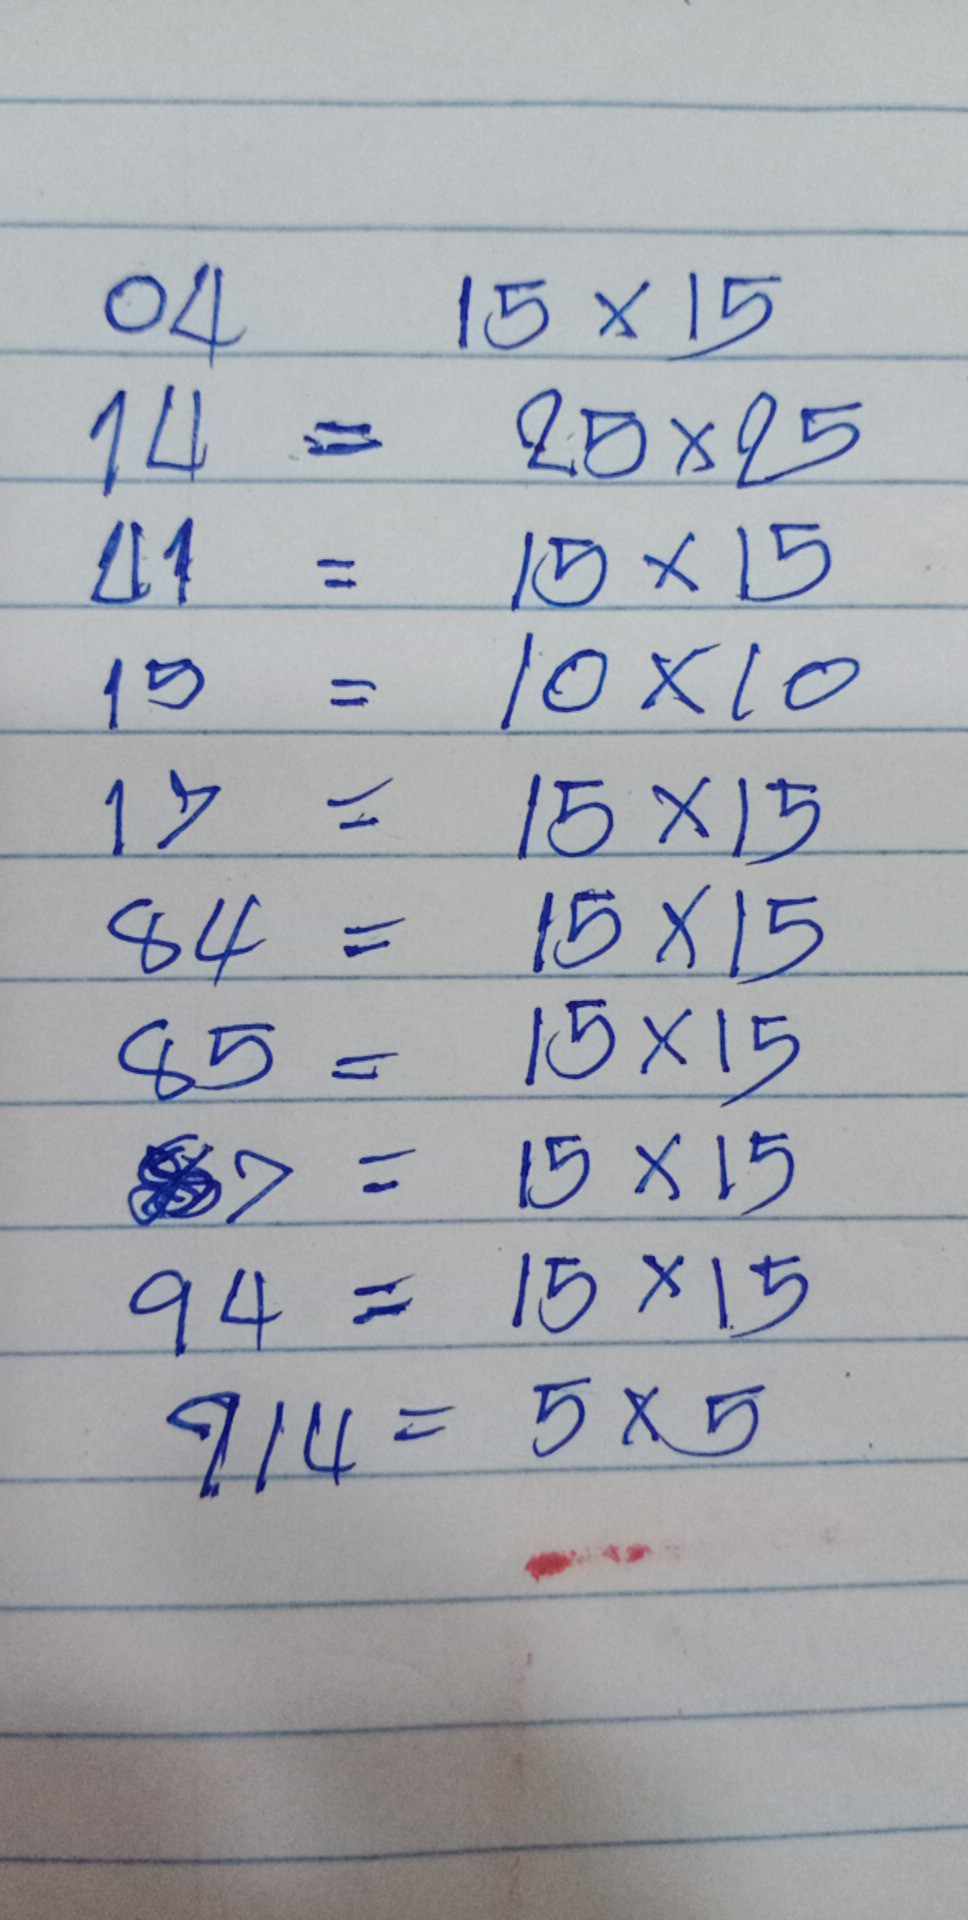 04 15 x 15
14 = 25 x 25
41 = 15 x 15
15 = 10 x 10
17 = 15 x 15
84 = 15 x 15
85 = 15 x 15
87 = 15 x 15
94 = 15 x 15
914 = 5 x 5